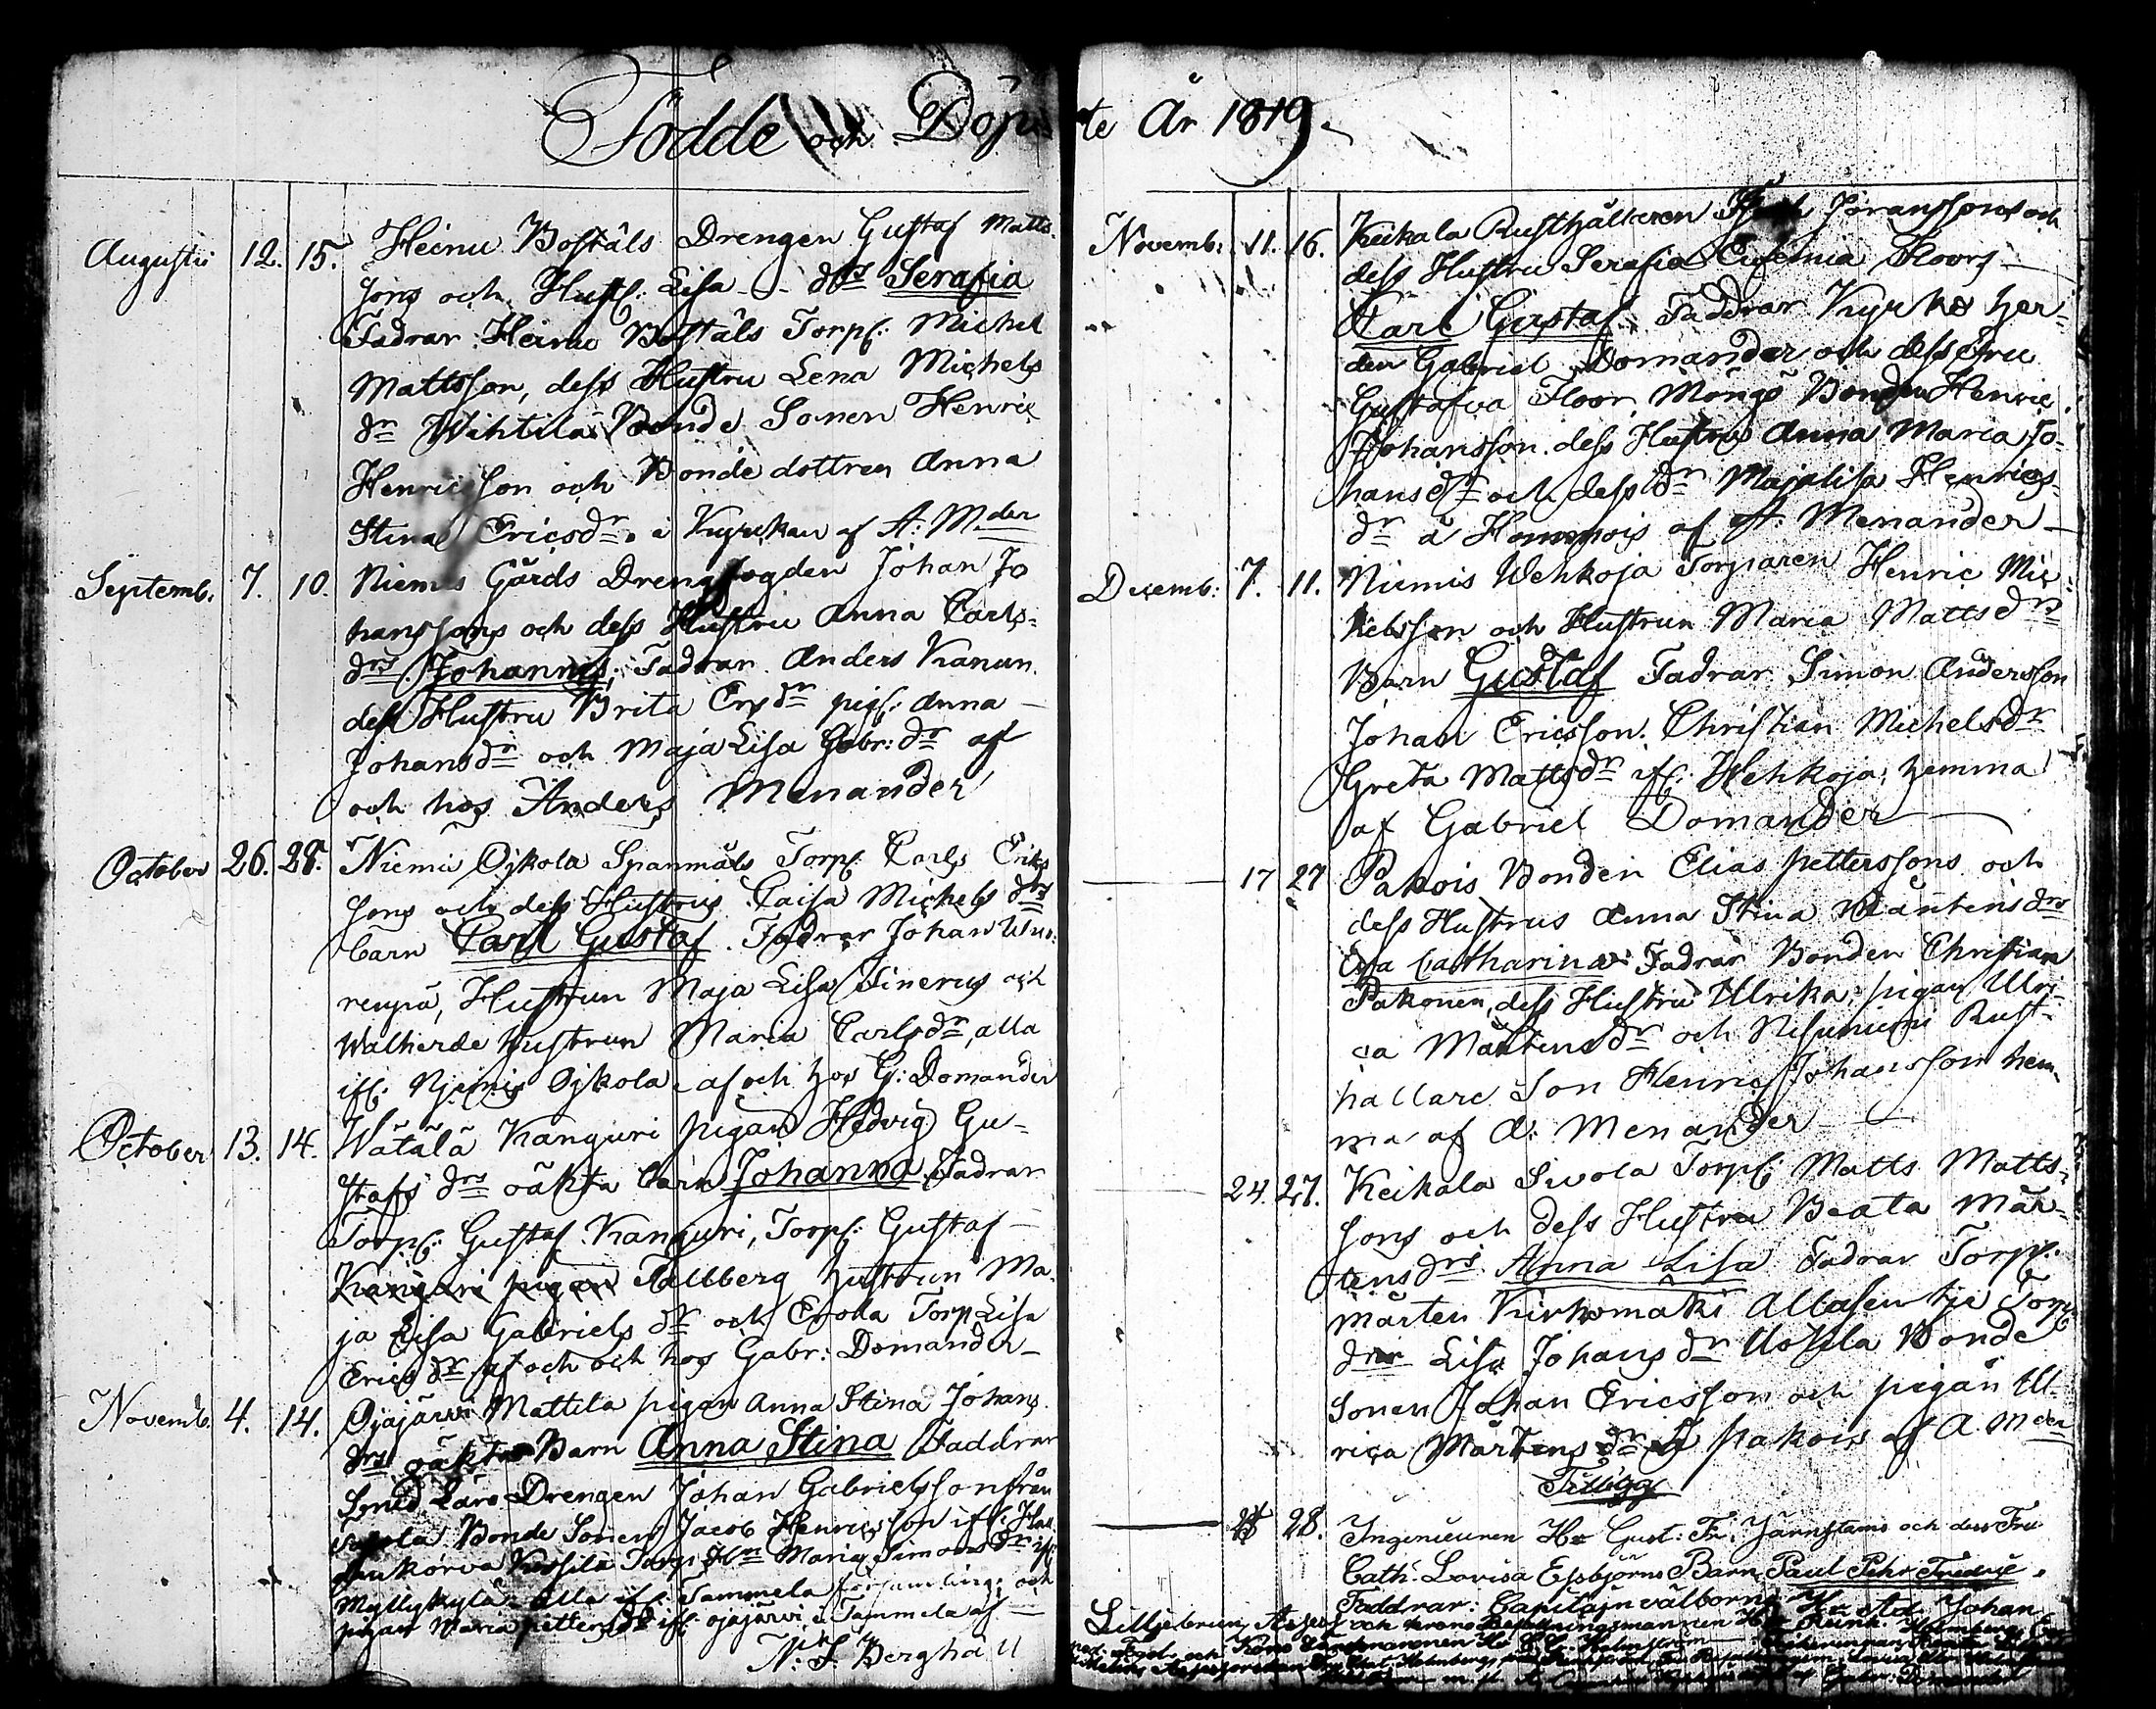 Födde och Döpte År 1819.
Augusti 12. 15. Heinu Boställs Drengen Gustaf Matts
sons och Hust: Lisa - - drs Serafia
Fadrar: Heinu Boställs Torp: Michel
Mattsson, dess Hustru Lena Michels
dr Wihtila Bonde Sonen Henric
Henricsson och Bonde dottren Anna
Stina Ericsdr i Kyrckan af A: Mder
Septemb. 7. 10. Niemis Gårds Drengfogden Johan Jo
hanssons och dess Hustru Anna Carls-
drs Johannes, Fadrar Anders Kanun
dess Hustru Brita Ersdr pig: Anna
Johansdr och Maja Lisa Gabr: dr af
och hos Anders Menander
October 26. 28. Niemi Ojkola Spanmåls Torp: Carls Eriks
sons och dess Hustrus Caisa Michels drs
barn Carl Gustaf. Fadrar Johan
Hustrun Maja Lisa och
hustrun Maria Carlsdr, alla
if: Niemis Ojkola af och hos G: Domander
October 13. 14. Wätälä Kanguri pigan Hedvig Gu-
stafs drs oäkta barn Johanna. Fadrar
Torp: Gustaf Kanguri, Torp: Gustaf
Kanguri pigan Fallberg hustrun Ma-
ja Lisa Gabriels dr och Torp Lisa
Erics dr af och och hos Gabr: Domander
Novemb. 4. 14. Ojajärvi Mattila pigan Anna Stina Johans
drs oäkta Barn Anna Stina Faddrar
Smed Lärs Drengen Johan Gabrielsson från
Bonde Sonen Jacob Henricsson if:
Torp: Maria Simons dr if:
Myllykylä alla if: Tammela församling, och
pigan Maria petters dr if: Ojajärvi i Tammela af
N: S: Berghäll
Novemb: 11. 16. Keikala Rusthållaren Joranssons och
dess Hustru Serafia Eufemia Floors
Carl Gustaf. Faddrar Kyrko her-
den Gabriel Domander och dess Fru
Gustafva Floor, Bonden Henric
Johansson. dess Hustru Anna Maria Jo-
hans dr och dess dr Majalisa Henrics-
dr å af A: Menander
Decemb: 7. 11. Niemis Wehkoja Torparen Henric Mic-
kelsson och Hustrun Maria Matts drs
Barn Gustaf Fadrar Simon Andersson
Johan Ericsson. Christian Michelsdr
Greta Mattsdr if: Wehkoja, hemma
af Gabriel Domander
17 27 Pakois Bonden Elias petterssons och
dess Hustrus Anna Stina Mårtens drs
Eva Catharina Fadrar Bonden Christian
Pakonen, dess Hustru Ulrika, pigan Ulri-
ca Mårtens dr och Nisuniemi Rust-
hållare Son Henric Johansson hem-
ma af A: Menander
24. 27. Keikala Sivola Torp: Matts Matts-
sons och dess Hustru Beata Mår-
tens drs Anna Lisa Fadrar Torp.
Mårten Kirkomäki Torp
Lisa Johans dr Uotila Bonde
Sonen Johan Ericsson och pigan Ul-
rica Mårtens dr if pakois af A. Mder
Tillägg
28. Ingenieuren Hr Gust: Fr: Järnstams och dess Fru
Cath: Lovisa Elfbjörns Barn Paul Pehr Fredric.
Faddrar: Capitajn välborne Hr Ad: Johan
Lilljebrunn, och Krono Befallningsmannen Hr Holmberg
och Krono Länsmannen Hr Holmström